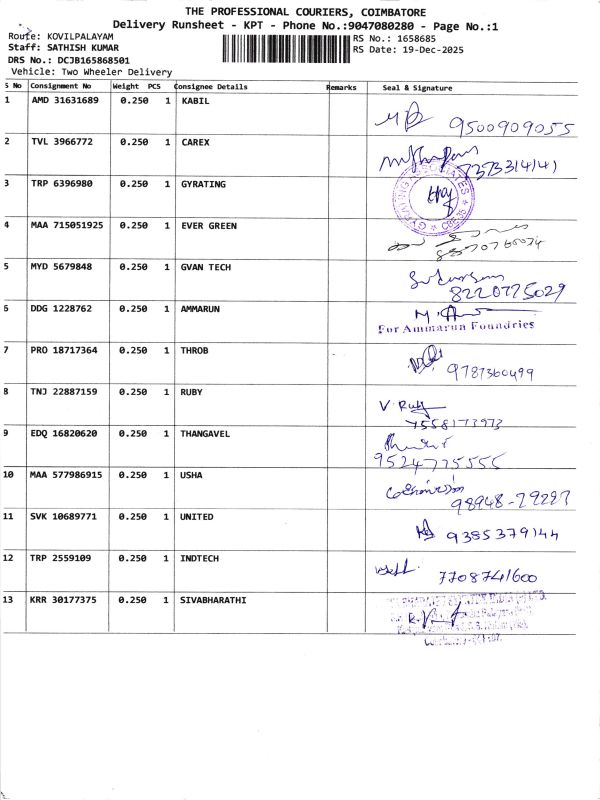 THE PROFESSIONAL COURIERS, COIMBATORE
Delivery Runsheet - KPT - Phone No.:9047080280 - Page No.:1
Route: KOVILPALAYAM
RS No.: 1658685
Staff: SATHISH KUMAR
RS Date: 19-Dec-2025
DRS No.: DCJB165868501
Vehicle: Two Wheeler Delivery
S No Consignment No Weight PCS Consignee Details Remarks Seal & Signature
1 AMD 31631689 0.250 1 KABIL
9500909055
2 TVL 3966772 0.250 1 CAREX
7373314141
3 TRP 6396980 0.250 1 GYRATING
GYRATING ASSOCIATES
4 MAA 715051925 0.250 1 EVER GREEN
5 MYD 5679848 0.250 1 GVAN TECH
8220725029
6 DDG 1228762 0.250 1 AMMARUN
For Ammarun Foundries
7 PRO 18717364 0.250 1 THROB
9787360499
8 TNJ 22887159 0.250 1 RUBY
V. Ruby
7558173973
9 EDQ 16820620 0.250 1 THANGAVEL
9524775555
10 MAA 577986915 0.250 1 USHA
98948-29297
11 SVK 10689771 0.250 1 UNITED
9385379144
12 TRP 2559109 0.250 1 INDTECH
7708741600
13 KRR 30177375 0.250 1 SIVABHARATHI